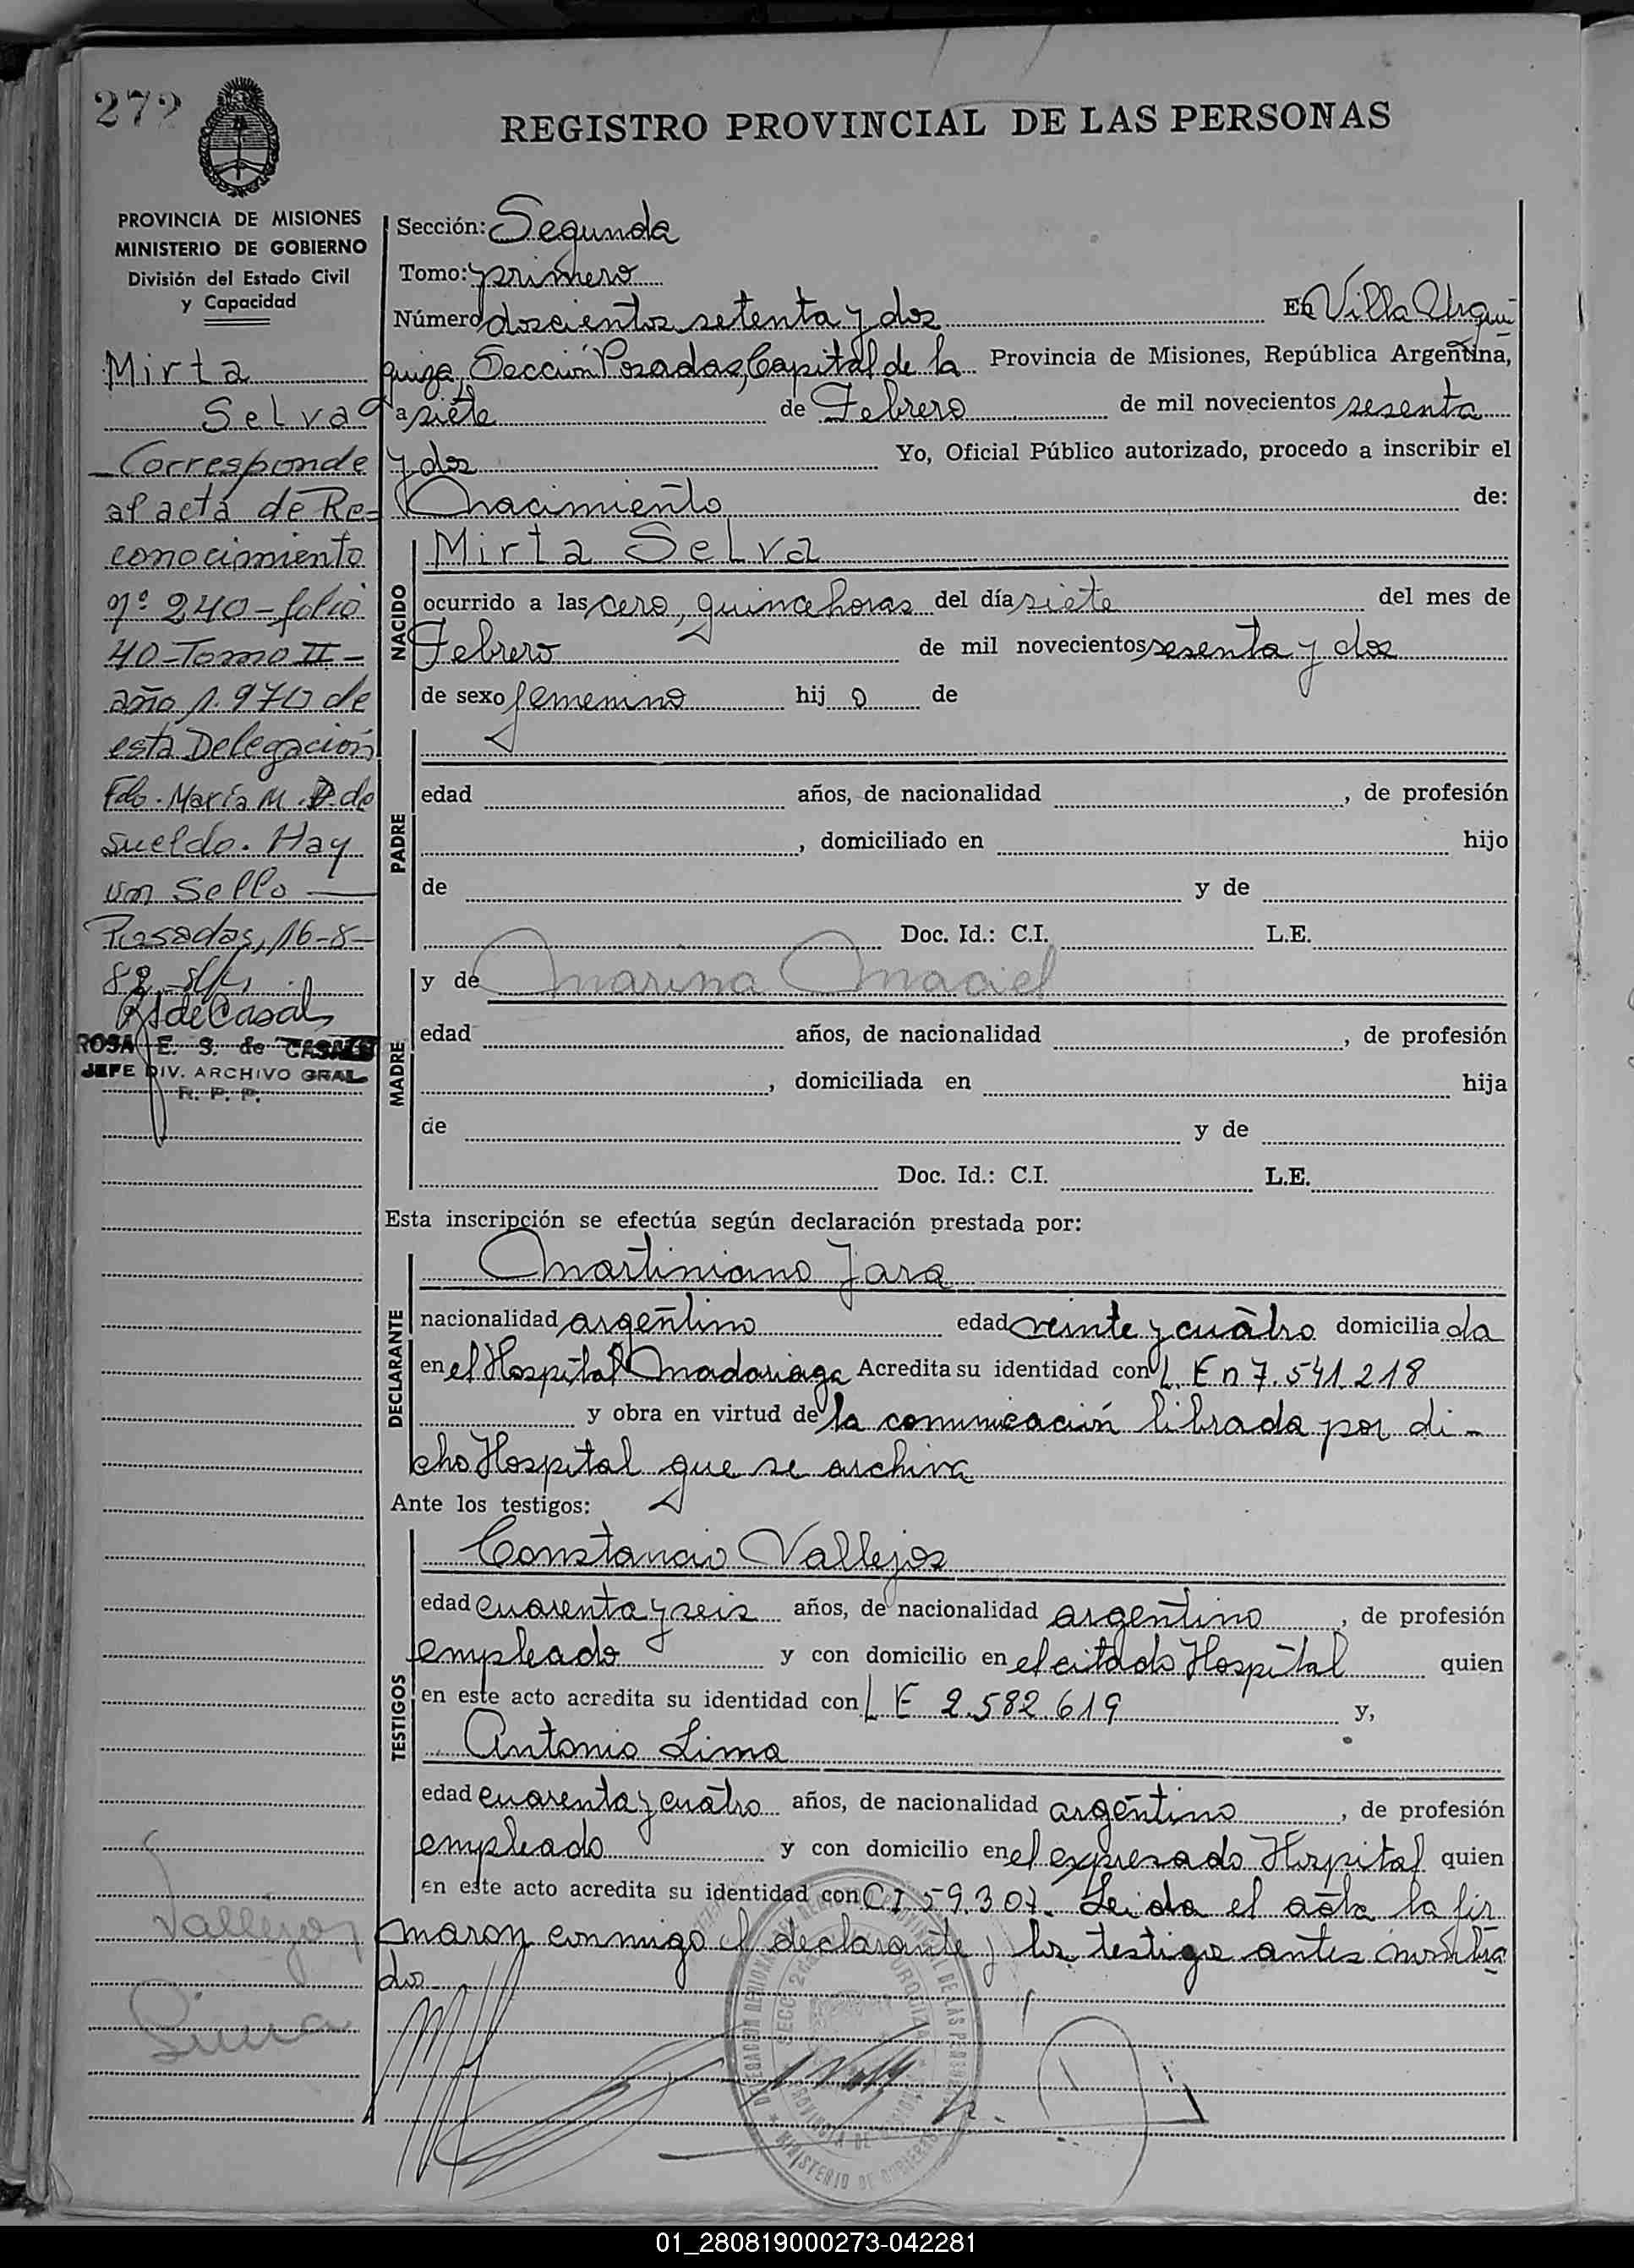 272
REGISTRO PROVINCIAL DE LAS PERSONAS
PROVINCIA DE MISIONES
MINISTERIO DE GOBIERNO
División del Estado Civil
y Capacidad
Mirta
Selva
Corresponde
al acta de Re=
conocimiento
nº 240-folio
40-Tomo II-
año 1.970 de
esta Delegación
Fdo. María M. P. de
Sueldo. Hay
un Sello
Posadas, 16-8-
82
ROSA E. S. de CASALS
JEFE DIV. ARCHIVO GRAL.
R. P. P.
Vallejos
Lima
Sección: Segunda
Tomo: primero
Número doscientos setenta y dos En Villa Urqui
quiza, Sección Posadas, Capital de la Provincia de Misiones, República Argentina,
a siete de Febrero de mil novecientos sesenta
y dos Yo, Oficial Público autorizado, procedo a inscribir el
nacimiento de:
NACIDO
Mirta Selva
ocurrido a las cero, quince horas del día siete del mes de
Febrero de mil novecientos sesenta y dos
de sexo femenino hij o de
PADRE
edad años, de nacionalidad , de profesión
, domiciliado en hijo
de y de
Doc. Id.: C.I. L.E.
MADRE
y de Marina Maciel
edad años, de nacionalidad , de profesión
, domiciliada en hija
de y de
Doc. Id.: C.I. L.E.
Esta inscripción se efectúa según declaración prestada por:
DECLARANTE
Martiniano Jara
nacionalidad argentino edad veinte y cuatro domicilia da
en el Hospital Madariaga Acredita su identidad con L. E n 7.541.218
y obra en virtud de la comunicación librada por di-
cho Hospital que se archiva
Ante los testigos:
TESTIGOS
Constancio Vallejos
edad cuarenta y seis años, de nacionalidad argentino , de profesión
empleado y con domicilio en el citado Hospital quien
en este acto acredita su identidad con L E 2.582.619 y,
Antonio Lima
edad cuarenta y cuatro años, de nacionalidad argentino , de profesión
empleado y con domicilio en el expresado Hospital quien
en este acto acredita su identidad con C I 59.307. Leida el acta la fir
maron conmigo el declarante y los testigos antes nombra
dos
01_280819000273-042281